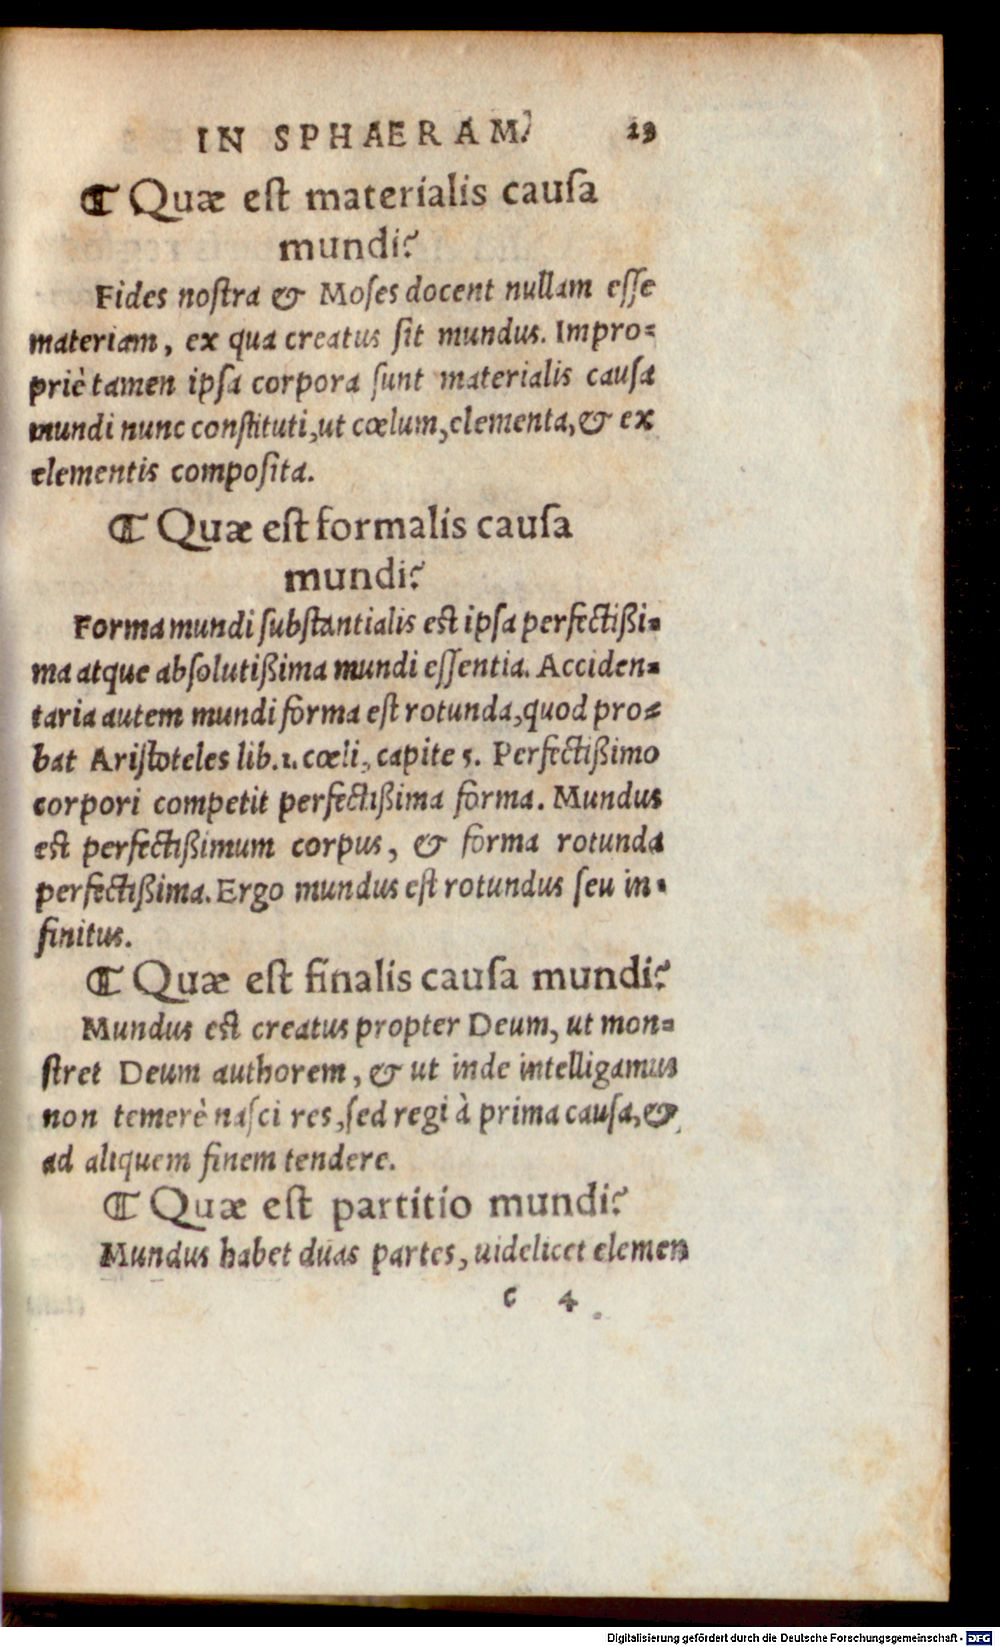 IN SPHAERAM. 23
¶ Quæ est materialis causa
mundi?
Fides nostra & Moses docent nullam esse
materiam, ex qua creatus sit mundus. Impro=
priè tamen ipsa corpora sunt materialis causa
mundi nunc constituti, ut cœlum, elementa, & ex
elementis composita.
¶ Quæ est formalis causa
mundi?
Forma mundi substantialis est ipsa perfectißi=
ma atque absolutißima mundi essentia. Acciden=
taria autem mundi forma est rotunda, quod pro=
bat Aristoteles lib. 1. cœli, capite 5. Perfectißimo
corpori competit perfectißima forma. Mundus
est perfectißimum corpus, & forma rotunda
perfectißima. Ergo mundus est rotundus seu in=
finitus.
¶ Quæ est finalis causa mundi?
Mundus est creatus propter Deum, ut mon=
stret Deum authorem, & ut inde intelligamus
non temerè nasci res, sed regi à prima causa, &
ad aliquem finem tendere.
¶ Quæ est partitio mundi?
Mundus habet duas partes, uidelicet elemen
c 4
Digitalisierung gefördert durch die Deutsche Forschungsgemeinschaft - DFG